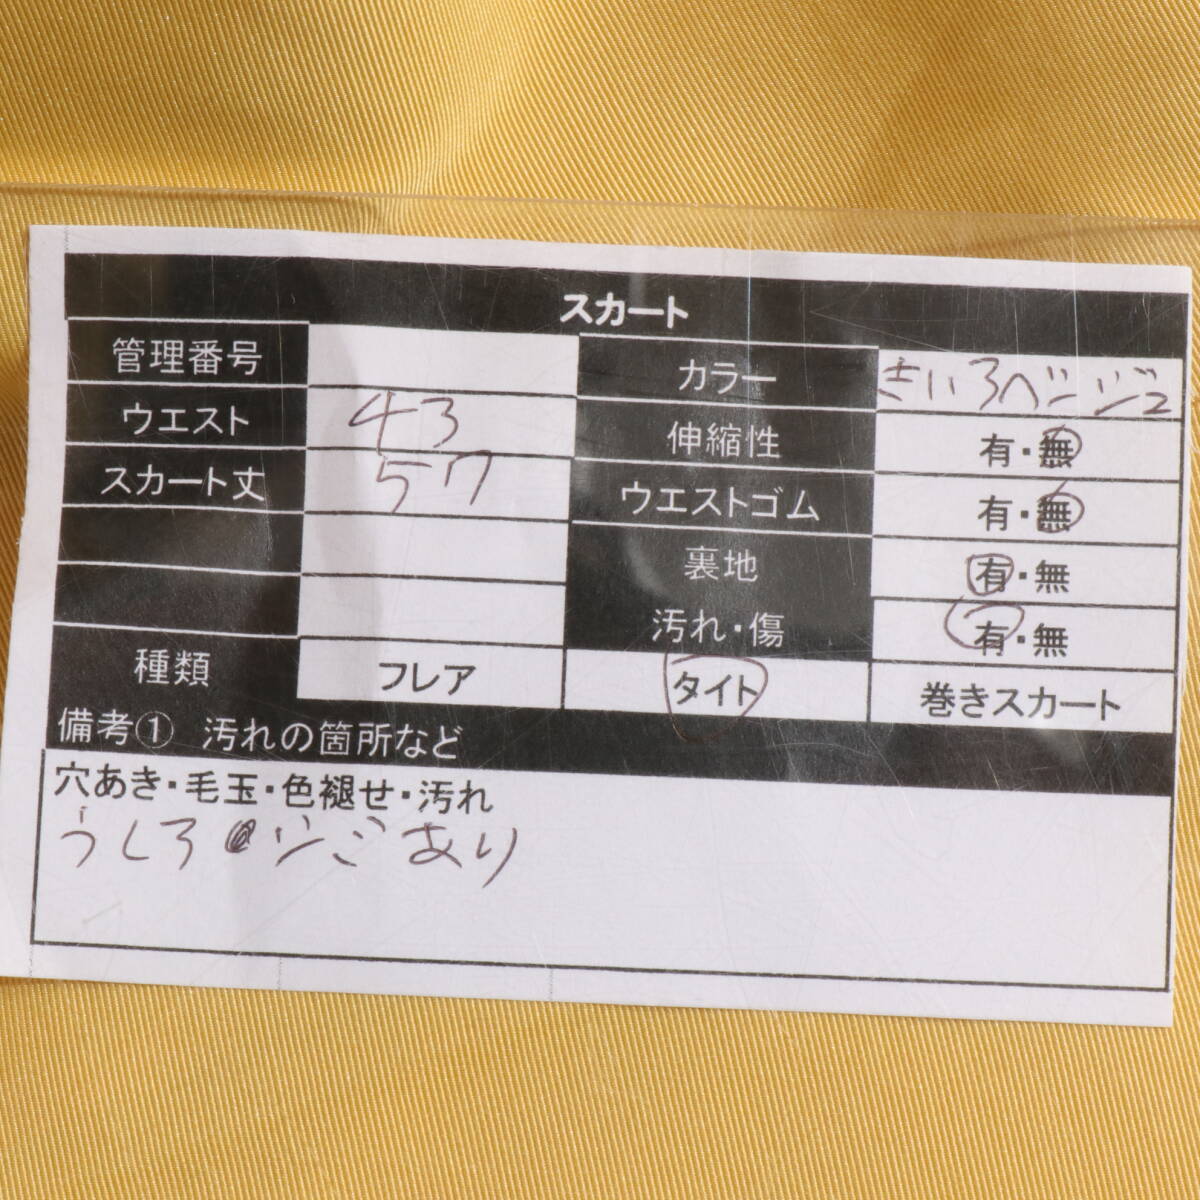 スカート
管理番号 カラー きいろベージュ
ウエスト 43 伸縮性 有・無
スカート丈 57 ウエストゴム 有・無
裏地 有・無
汚れ・傷 有・無
種類 フレア タイト 巻きスカート
備考① 汚れの箇所など
穴あき・毛玉・色褪せ・汚れ
うしろ あり